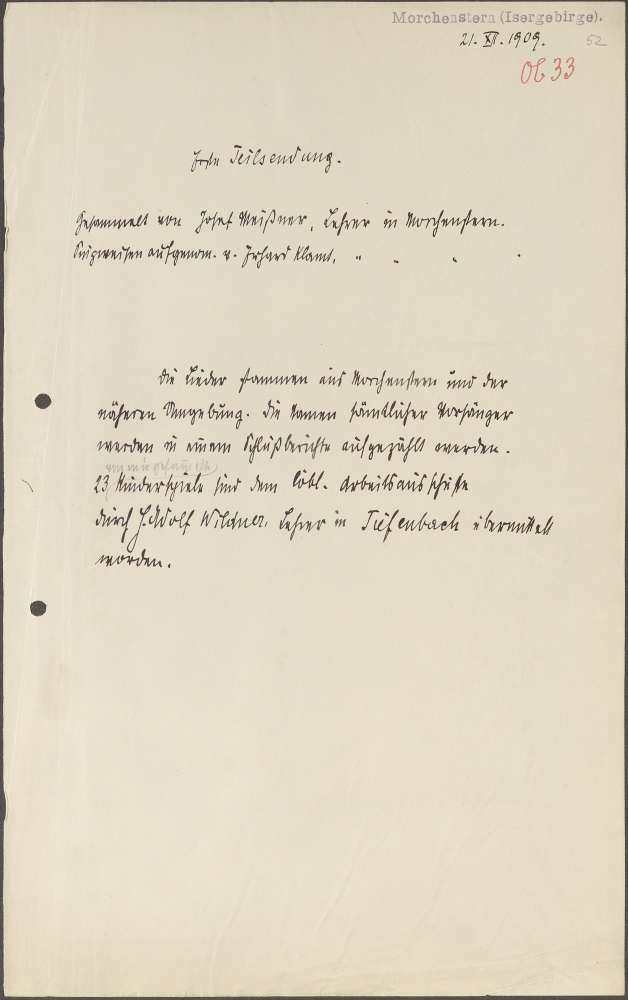 Morchenstern (Isergebirge).
21. XII. 1909.
52
Ob 33
Erste Teilsendung.
Gesammelt von Josef Meißner, Lehrer in Morchenstern.
Singweisen aufgenom. v. Erhard Klamt, " " " "
Die Lieder stammen aus Morchenstern und der
näheren Umgebung. Die Namen sämtlicher Vorsänger
werden in einem Schlußberichte aufgezählt werden.
von mir gesammelte
23 Kinderspiele sind dem löbl. Arbeitsausschusse
durch H. Adolf Wildner, Lehrer in Tiefenbach übermittelt
worden.